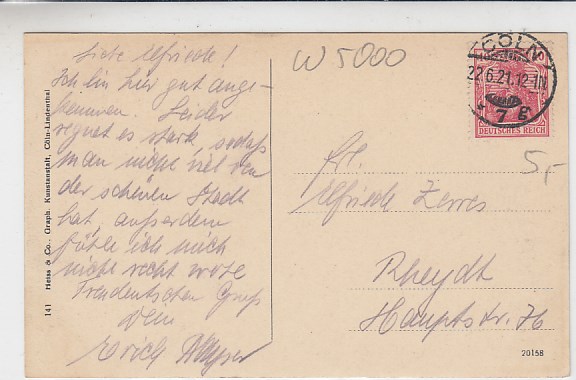 Liebe Elfriede!
Ich bin hier gut ange-
kommen. Leider
regnet es stark, sodaß
man nicht viel von
der schönen Stadt
hat, außerdem
fühle ich mich
nicht recht wohl
Freudentschen Gruß
Dein
Erich
W 5000
CÖLN
22.6.21.12-1N
* 7 g
DEUTSCHES REICH
5,-
Frl.
Elfriede Zerres
Rheydt
Hauptstr. 76
20158
141 Heiss & Co., Graph. Kunstanstalt, Cöln-Lindenthal